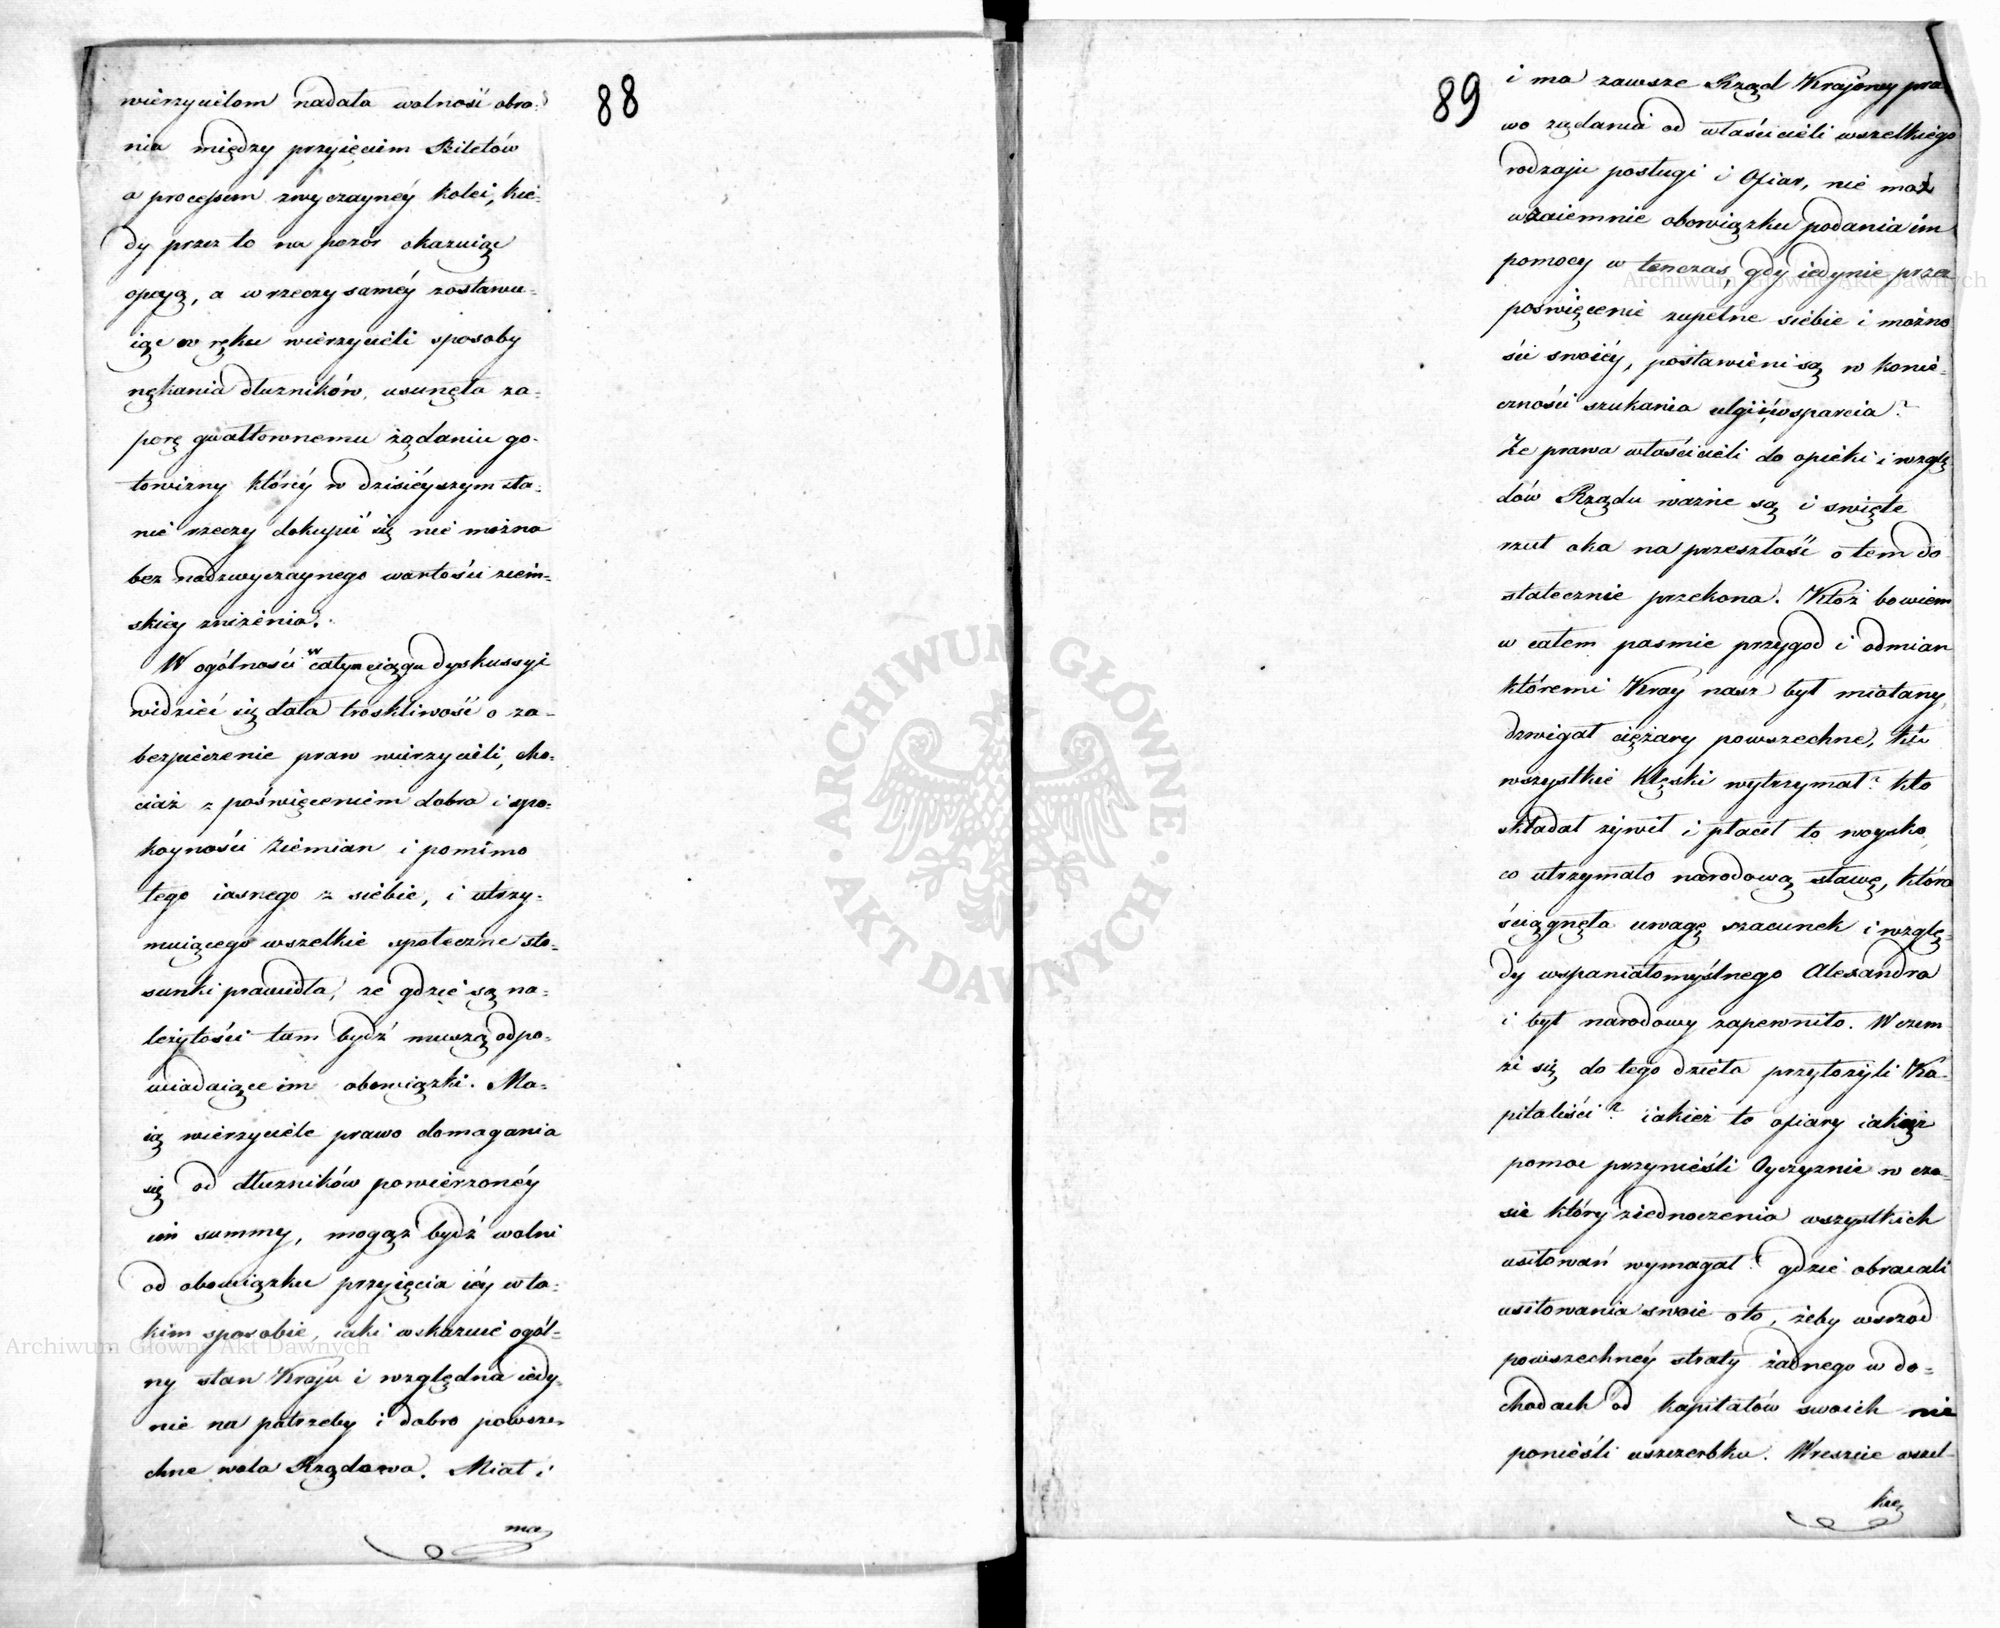 88
wierzycielom nadała wolność obro-
nia między przyięciem Biletów
a processem zwyczaynéy kolei, kie-
dy przez to na pozór okazuiąc
opcyą, a w rzeczy saméy zostawu-
iąc w ręku wierzycieli sposoby
nękania dłużników, usunęła za-
porę gwałtownemu żądaniu go-
towizny któréy w dzisiéyszym sta-
nie rzeczy dokupić się nie można
bez nadzwyczaynego wartości ziem-
skiey zniżenia.
W ogólności w całym ciągu dyskussyi
widzieć się dała troskliwość o za-
bezpieczenie praw wierzycieli, cho-
ciaż z poświęceniem dobra i spo-
koyności Ziemian i pomimo
tego iasnego z siebie, i utrzy-
muiącego wszelkie społeczne sto-
sunki prawidła, że gdzie są na-
leżytości tam bydź muszą odpo-
wiadaiące im obowiązki. Ma-
ią wierzyciele prawo domagania
się od dłużników powierzonéy
im summy, mogąż bydź wolni
od obowiązku przyięcia iéy w ta-
kim sposobie, iaki wskazuie ogól-
ny stan Kraju i względna iedy-
nie na potrzeby i dobro powsze-
chne wola Rządowa. Miał i
ma
89
i ma zawsze Rząd Krajowy pra
wo żądania od właścicieli wszelkiego
rodzaju posługi i Ofiar, nie maż
wzaiemnie obowiązku podania im
pomocy w tenczas, gdy iedynie przez
poswięcenie zupełne siebie i możno
ści swoiéy, postawieni są w konie-
czności szukania ulgi i wsparcia?
Że prawa właścicieli do opieki i wzglę
dów Rządu ważne są i swięte
rzut oka na przeszłość o tem do
statecznie przekona. Któż bowiem
w całem pasmie przygod i odmian
któremi Kray nasz był miotany,
dzwigał ciężary powszechne, kto
wszystkie klęski wytrzymał? kto
składał żywił i płacił to woysko,
co utrzymało narodową sławę, która
ściągnęła uwagę szacunek i wzglę-
dy wspaniałomyślnego Alexandra
i byt narodowy zapewniło. W czem-
że się do tego dzieła przyłożyli Ka-
pitaliści? iakież to ofiary iakąż
pomoc przynieśli Oyczyznie w cza-
sie który ziednoczenia wszystkich
usiłowań wymagał? gdzie obracali
usiłowania swoie oto, żeby wsrzód
powszechnéy straty żadnego w do-
chodach od kapitałów swoich nie
ponieśli uszczerbku. Wreszcie wszel-
kie
ARCHIWUM GŁÓWNE · AKT DAWNYCH ·
Archiwum Główne Akt Dawnych
Archiwum Główne Akt Dawnych